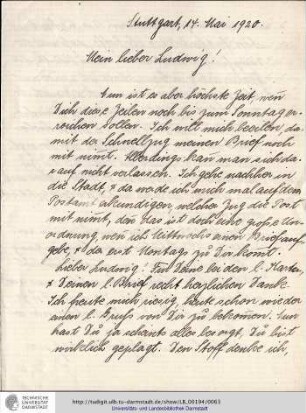 Stuttgart, 14. Mai 1920.
Mein lieber Ludwig!
Nun ist es aber höchste Zeit, wen
Dich diese Zeilen noch bis zum Sonntag er-
reichen sollen. Ich will mich beeilen, da-
mit der Schnellzug meinen Brief noch
mit nimt. Allerdings kan man sich da-
rauf nicht verlassen. Ich gehe nachher in
die Stadt, & da werde ich mich mal auf dem
Postamt erkundigen, welcher Zug die Post
mit nimt, den das ist doch eine große Un-
ordnung, wen ich Mittwochs einen Brief auf-
gebe, & der erst Montags zu Dir komt.
Lieber Ludwig! Für Deine beiden l. Karten
& Deinen l. Brief recht herzlichen Dank.
Ich freute mich riesig, heute schon wieder
einen l. Gruß von Dir zu bekomen. Nun
hast Du ja scheints alles besorgt, Du bist
wirklich geplagt. Den Stoff denke ich,
TECHNISCHE
UNIVERSITÄT
DARMSTADT
http://tudigit.ulb.tu-darmstadt.de/show/LB_00194/0063
Universitäts- und Landesbibliothek Darmstadt